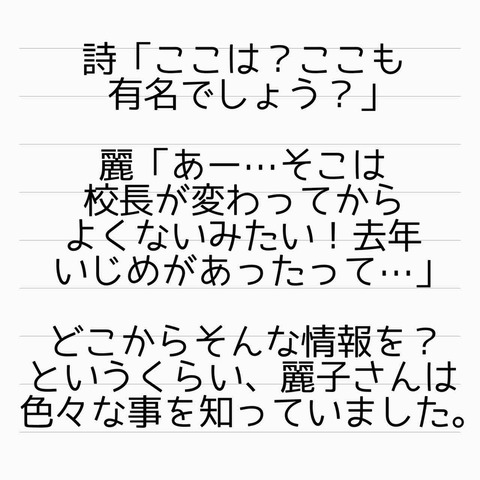 詩「ここは？ここも
有名でしょう？」
麗「あー…そこは
校長が変わってから
よくないみたい！去年
いじめがあったって…」
どこからそんな情報を？
というくらい、麗子さんは
色々な事を知っていました。